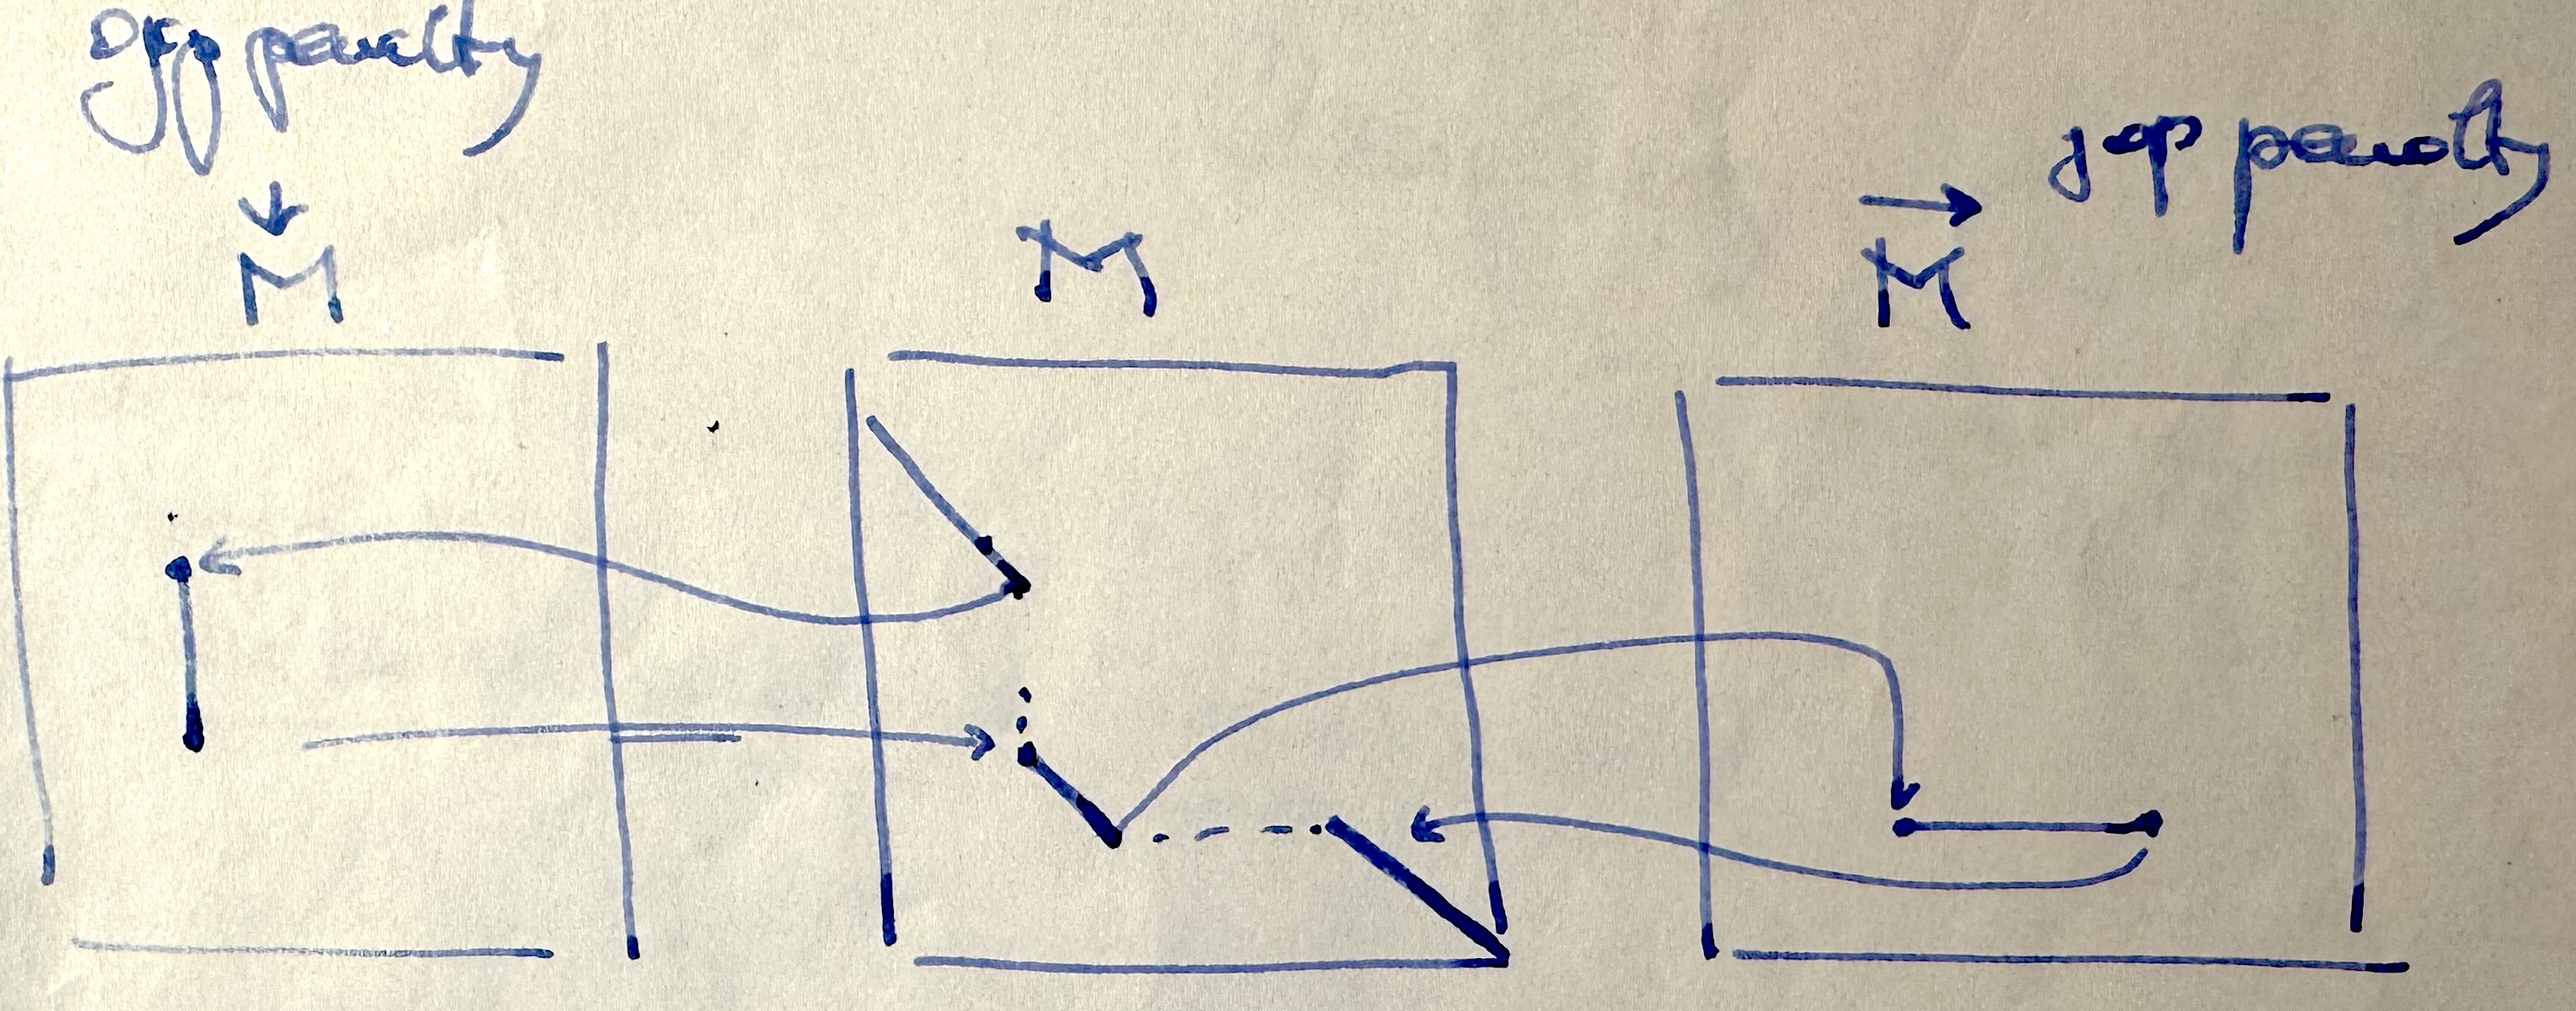 gap penalty
gap penalty
↓
→
M
M
M